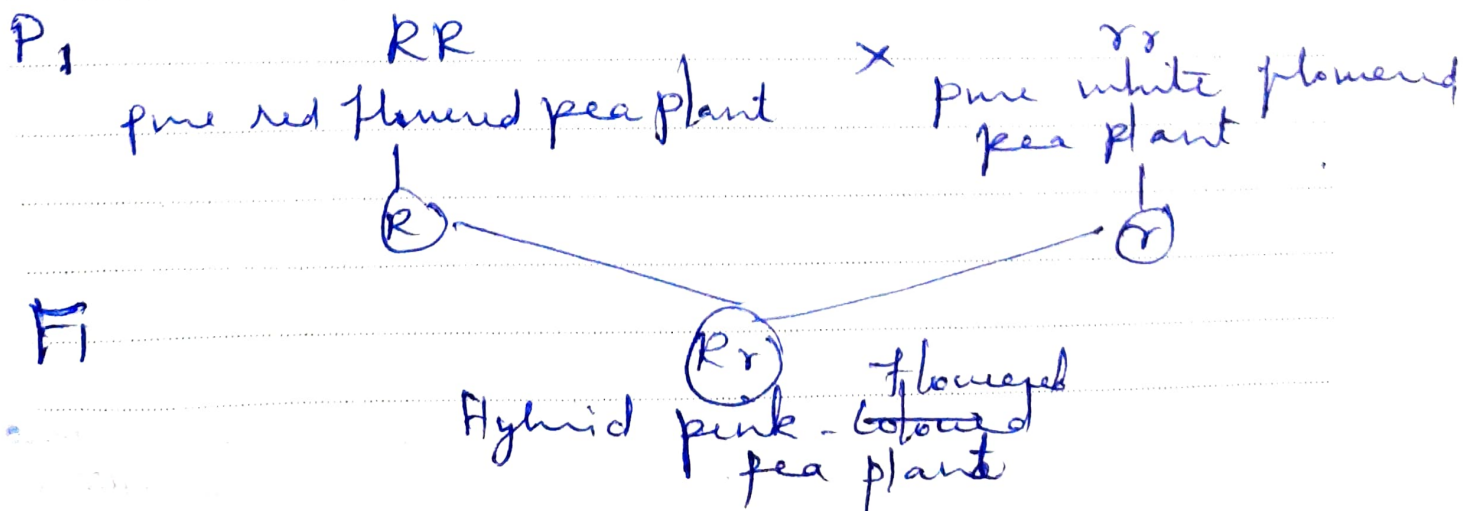 P1 RR × rr
pure red flowered pea plant pure white flowered
pea plant
R r
F1
Rr
Flowered
Hybrid pink - coloured
pea plant